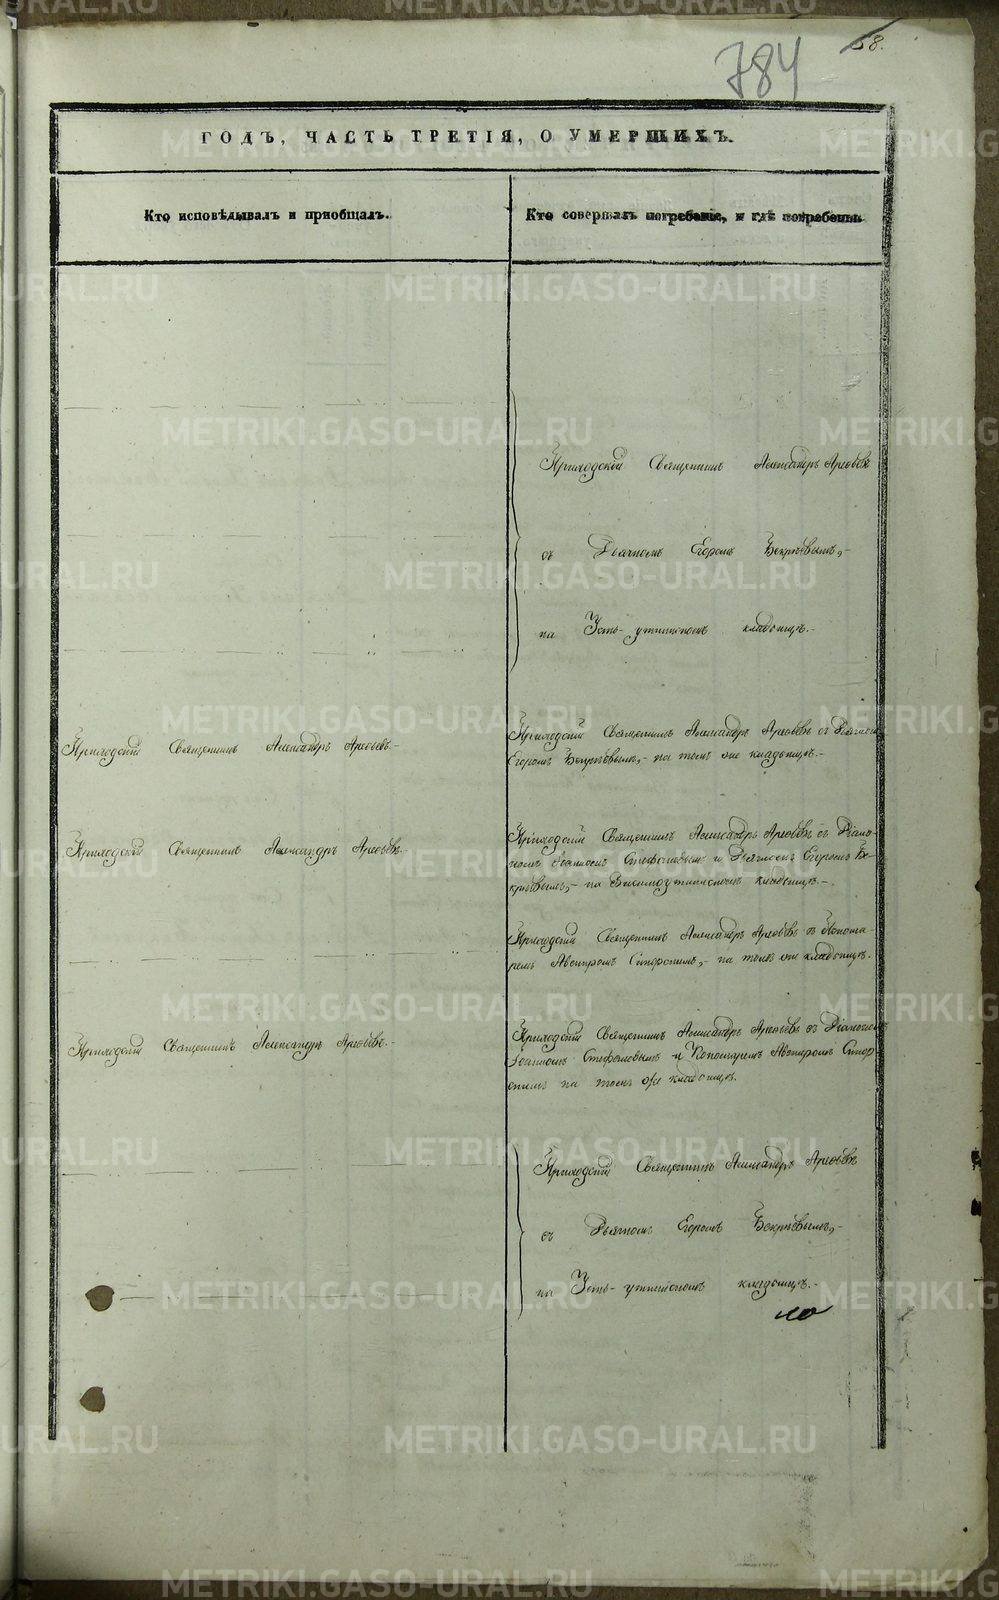 784
58.
ГОДЪ, ЧАСТЬ ТРЕТІЯ, О УМЕРШИХЪ.
Кто исповѣдывалъ и приобщалъ.
Кто совершалъ погребеніе, и гдѣ погребены.
Приходской Священникъ Александръ Арефьевъ
съ Дьячкомъ Егоромъ Бекрѣевымъ,-
на Усть-уткинскомъ кладбищѣ.-
Приходский Священникъ Александръ Арефьевъ.-
Приходский Священникъ Александръ Арефьевъ съ Дьячкомъ
Егоромъ Бекрѣевымъ,- на томъ же кладбищѣ.-
Приходский Священникъ Александръ Арефьевъ.
Приходский Священникъ Александръ Арефьевъ съ Діако-
номъ Іоанномъ Стефановымъ и Дьячкомъ Егоромъ Бе-
крѣевымъ,- на кладбищѣ.-
Приходский Священникъ Александръ Арефьевъ съ Понома-
ремъ на томъ же кладбищѣ.
Приходский Священникъ Александръ Арефьевъ.-
Приходский Священникъ Александръ Арефьевъ съ Діакономъ
Іоанномъ Стефановымъ и Пономаремъ
на томъ же кладбищѣ.
Приходский Священникъ Александръ Арефьевъ
съ Дьячкомъ Егоромъ Бекрѣевымъ,-
на Усть-уткинскомъ кладбищѣ.-
METRIKI.GASO-URAL.RU